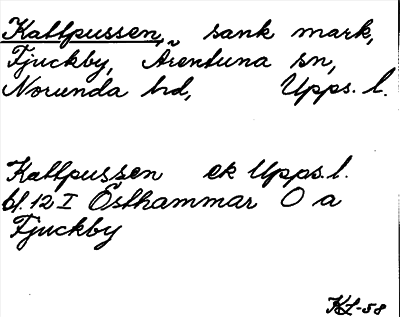 Kattpussen, sank mark,
Fjuckby, Ärentuna sn,
Norunda hd, Upps. l.
Kattpussen ek Upps. l.
bl. 12 I Östhammar O a
Fjuckby
KL-58